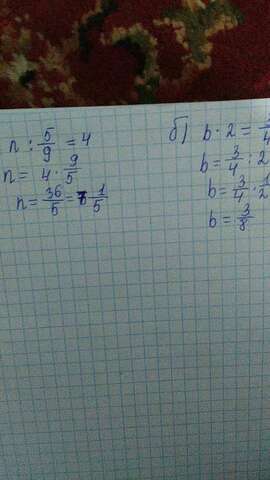 n : 5/9 = 4
n = 4 · 9/5
n = 36/5 = 7 1/5
б) b · 2 = 3/4
b = 3/4 : 2
b = 3/4 · 1/2
b = 3/8